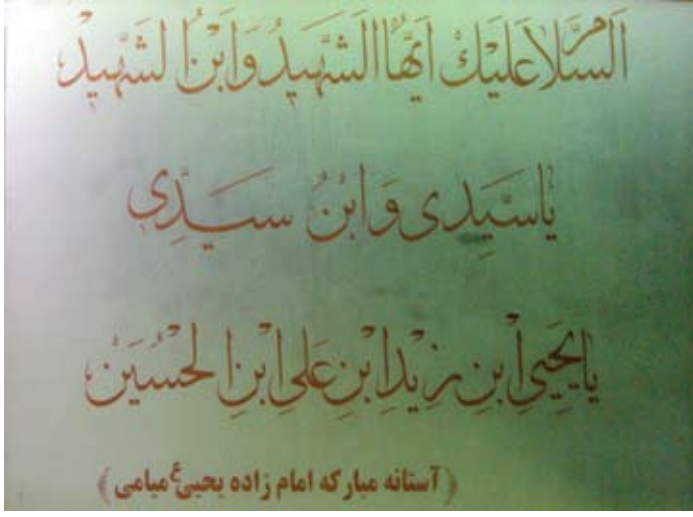 اَلسَّلامُ عَلَيْكَ اَيُّهَا الشَّهيدُ وَابْنُ الشَّهيدْ
ياسَيِّدی وَابْنُ سَيِّدِی
يايَحْيیَ ابْنِ زَيْدِ ابْنِ عَلیِ ابْنِ الحُسَيْنْ
﴿ آستانه مبارکه امام زاده یحیی ع میامی ﴾